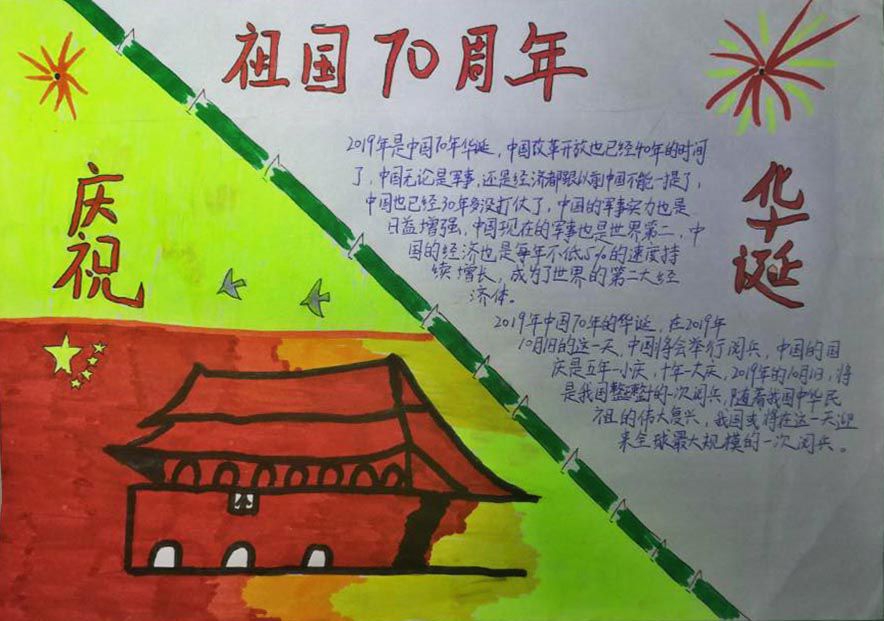 祖国70周年
庆祝
华诞
2019年是中国70年华诞,中国改革开放也已经40年的时间
了,中国无论是军事,还是经济都跟以前中国不能一提了,
中国也已经30年多没打仗了,中国的军事实力也是
日益增强,中国现在的军事也是世界第二,中
国的经济也是每年不低5%的速度持
续增长,成为了世界的第二大经
济体。
2019年中国70年的华诞,在2019年
10月1日的这一天,中国将会举行阅兵,中国的国
庆是五年一小庆,十年一大庆,2019年的10月1日,将
是我国整整的一次阅兵,随着我国中华民
祖的伟大复兴,我国或将在这一天迎
来全球最大规模的一次阅兵。